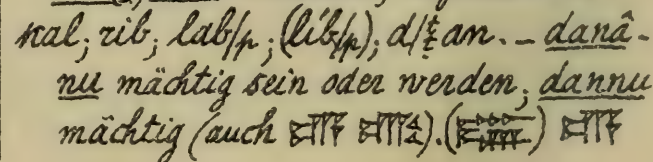 kal; rib; lab/p; (líb/p); d/t/ṭan. – danâ-
nu mächtig sein oder werden; dannu
mächtig (auch 𒆗 𒆗